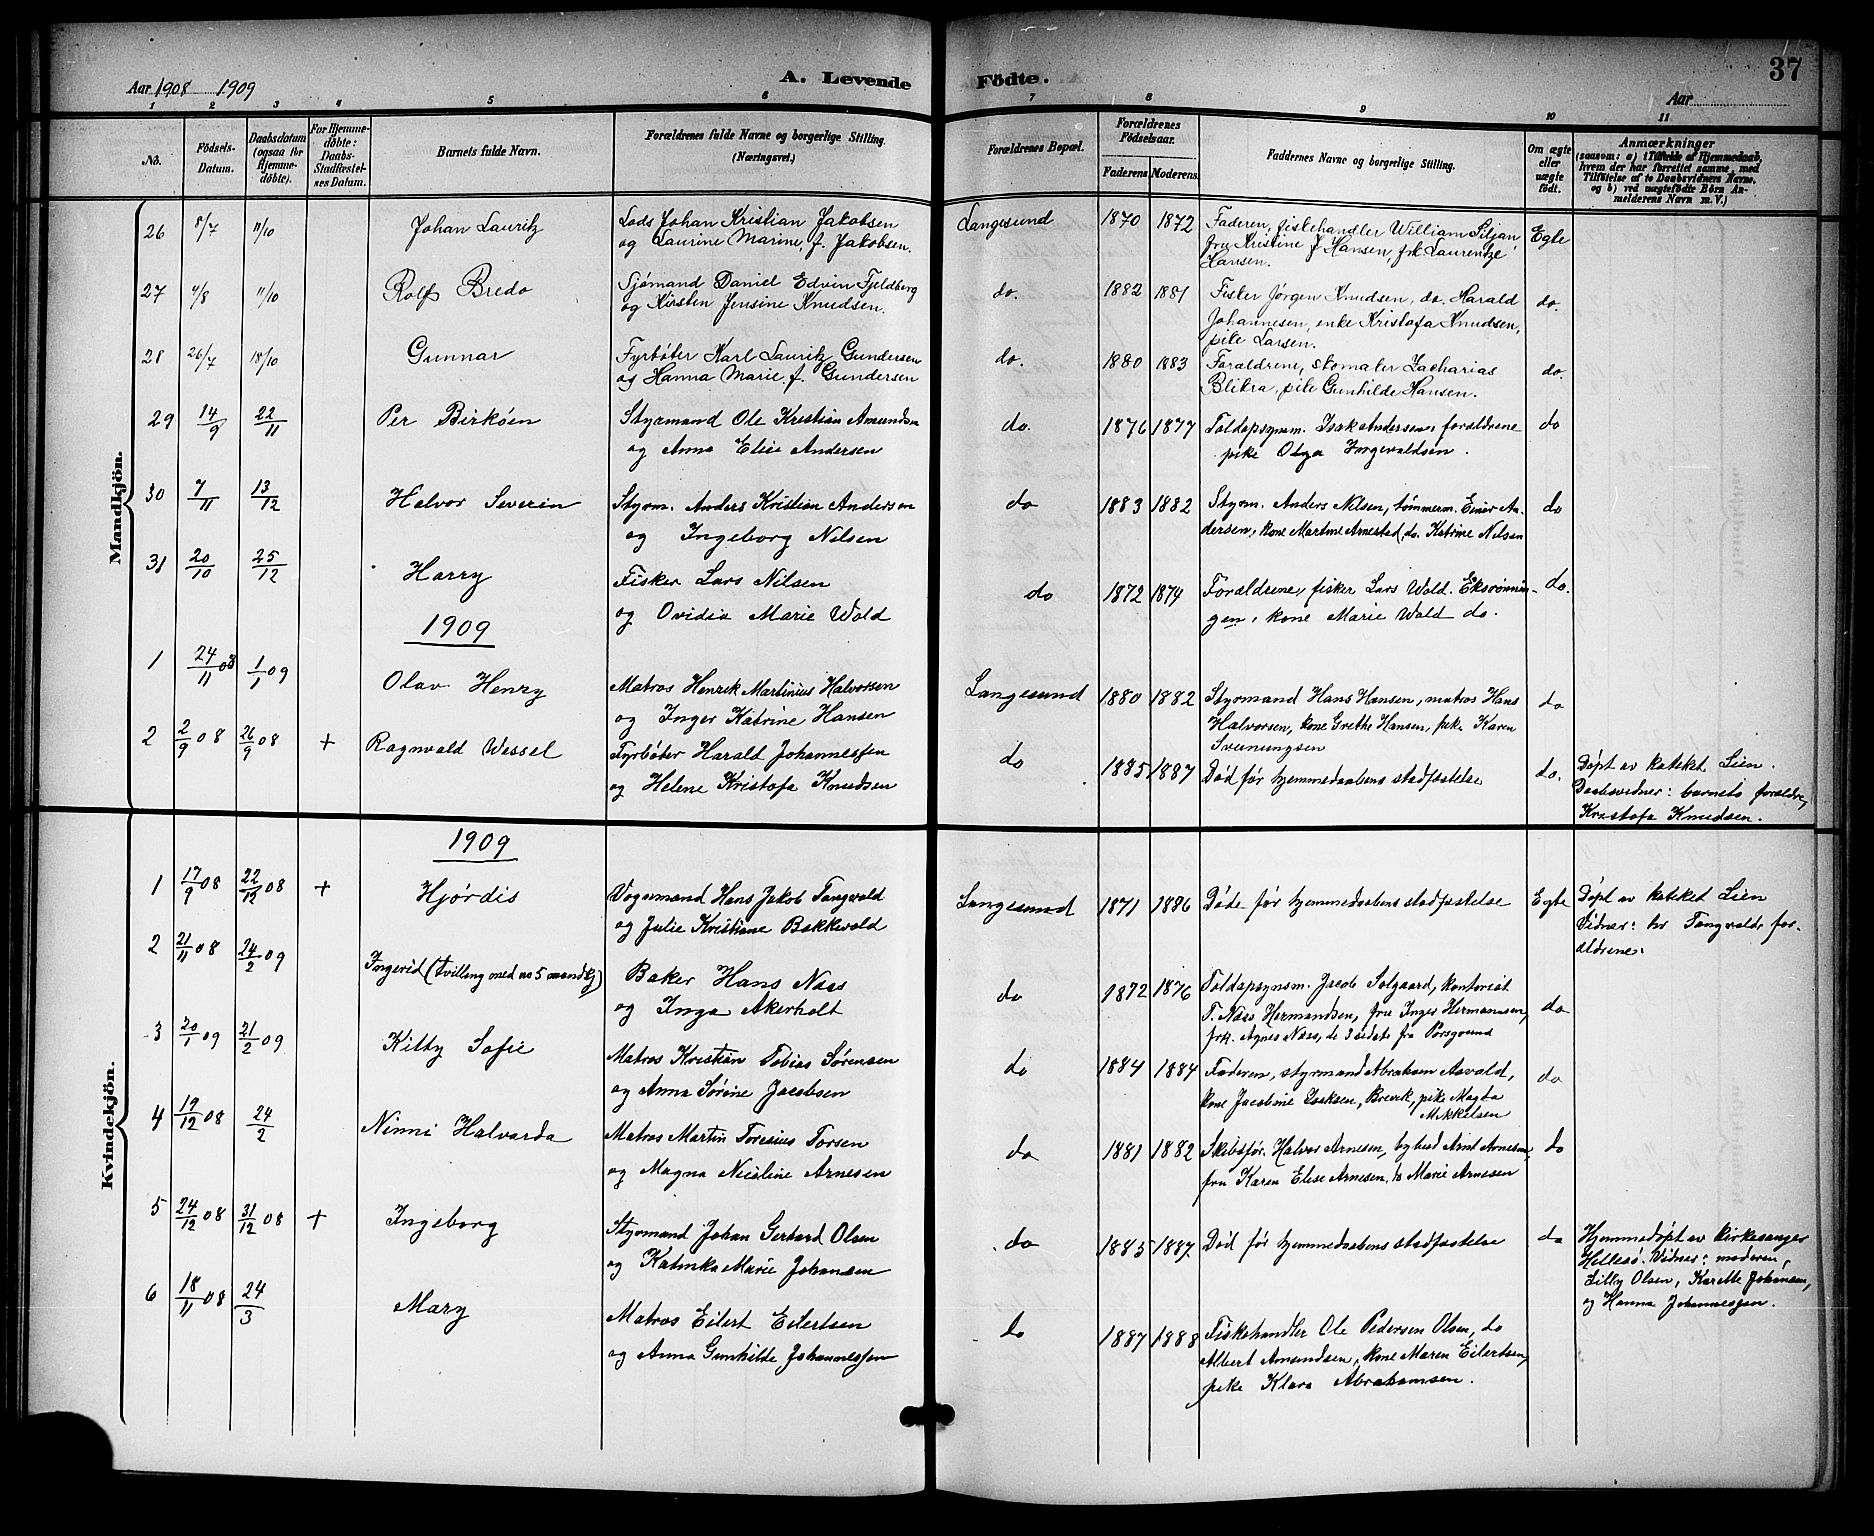 Aar 1908 1909
A. Levende Födte.
37
Aar
1 2 3 4 5 6 7 8 9 10 11
No.
Födsels-Datum.
Daabsdatum (ogsaa for Hjemme-döbte).
For Hjemme-döbte: Daabs-Stadfæstel-ses Datum.
Barnets fulde Navn.
Forældrenes fulde Navne og borgerlige Stilling.
(Næringsvei.)
Forældrenes Bopæl.
Forældrenes Födselsaar.
Faderens Moderens
Faddernes Navne og borgerlige Stilling.
Om ægte eller uægte födt.
Anmærkninger
(saasom: a) i Tilfælde af Hjemmedaab,
hvem der har forrettet samme, med
Tilföielse af to Daabsvidners Navne.
og b) ved uægtefödte Börn An-
melderens Navn m. V.)
Mandkjön.
26 8/7 11/10 Johan Lauritz Lods Johan Kristian Jakobsen Langesund 1870 1872 Faderen, fiskehandler William Siljan Egte
og Laurine Marine, f. Jakobsen. fru Kristine f Hansen, frk Laurentze
Hansen.
27 4/8 11/10 Rolf Bredo Sjömand Daniel Edvin Fjeldberg do. 1882 1881 Fisker Jörgen Knudsen, do. Harald do.
og Kirsten Jensine Knudsen. Johannesen, enke Kristofa Knudsen,
pike Larsen.
28 26/7 18/10 Gunnar Fyrböter Karl Lauritz Gundersen do. 1880 1883 Forældrene, stomaler Zacharias do.
og Hanna Marie, f. Gundersen Blikra, pike Gunhilde Hansen.
29 14/9 22/11 Per Birköen Styrmand Ole Kristian Amundsen do. 1876 1877 Toldopsynsm. Isak Andersen, forældrene do
og Anna Elise Andersen pike Olga Ingevaldsen.
30 7/11 13/12 Halvor Severin Styrm. Anders Kristian Andersen do 1883 1882 Styrm. Anders Nilsen, tömmerm. Einar An- do
og Ingeborg Nilsen dersen, kone Martine Arnestad, do. Katrine Nilsen
31 20/10 25/12 Harry Fisker Lars Nilsen do 1872 1874 Forældrene, fisker Lars Wold. Eksrönnin- do.
og Ovidia Marie Wold gen, kone Marie Wold do.
1909
1 24/11 08 1/1 09 Olav Henry Matros Henrik Martinius Halvorsen Langesund 1880 1882 Styrmand Hans Hansen, matros Hans do
og Inger Katrine Hansen Halvorsen, kone Grethe Hansen, pike Karen
Sveinungsen
2 2/9 08 26/9 08 + Ragnvald Wessel Fyrböter Harald Johannessen do 1885 1887 Död för hjemmedaabens stadfæstelse do. Döpt av kateket Lien.
og Helene Kristofa Knudsen Daabsvidner: barnets forældre,
Kristofa Knudsen.
Kvindekjön.
1909
1 17/9 08 22/12 08 + Hjördis Vognmand Hans Jakob Tangvald Langesund 1871 1886 Döde för hjemmedaabens stadfæstelse Egte Döpt av kateket Lien
og Julie Kristiane Bakkevold Vidner: hr Tangvald, for-
ældrene.
2 21/11 08 24/2 09 Ingerid (tvilling med no 5 mandkj) Baker Hans Næss do 1872 1876 Toldopsynsm. Jacob Solgaard, kontorist do
og Inga Akerholt T. Næss Hermandsen, fru Inger Hermannsen,
frk. Agnes Næss, de 3 sidste fra Porsgrund
3 20/1 09 21/2 09 Kitty Sofie Matros Kristian Tobias Sörensen do 1884 1884 Faderen, styrmand Abraham Aavald, do
og Anna Sörine Jacobsen kone Jacobine Isaksen, Brevik, pike Magda
Mikkelsen
4 19/12 08 24/2 Ninni Halvarda Matros Martin Toresius Torsen do 1881 1882 Skibsför. Halvor Arnesen, bybud Arnt Arnesen do
og Magna Nicoline Arnesen fru Karen Elise Arnesen, do Marie Arnesen
5 24/12 08 31/12 08 + Ingeborg Styrmand Johan Gerhard Olsen do 1885 1887. Död för hjemmedaabens stadfæstelse do Hjemmedöpt av kirkesanger
og Katinka Marie Johansen Hellesö. Vidner: moderen,
Lilly Olsen, Karette Johansen,
og Hanna Johannessen.
6 18/11 08 24/3 Mary Matros Eilert Eilertsen do 1887 1888 Fiskehandler Ole Pedersen Olsen, do
og Anna Gunhilde Johannessen Albert Amundsen, kone Maren Eilertsen,
pike Klara Abrahamsen.